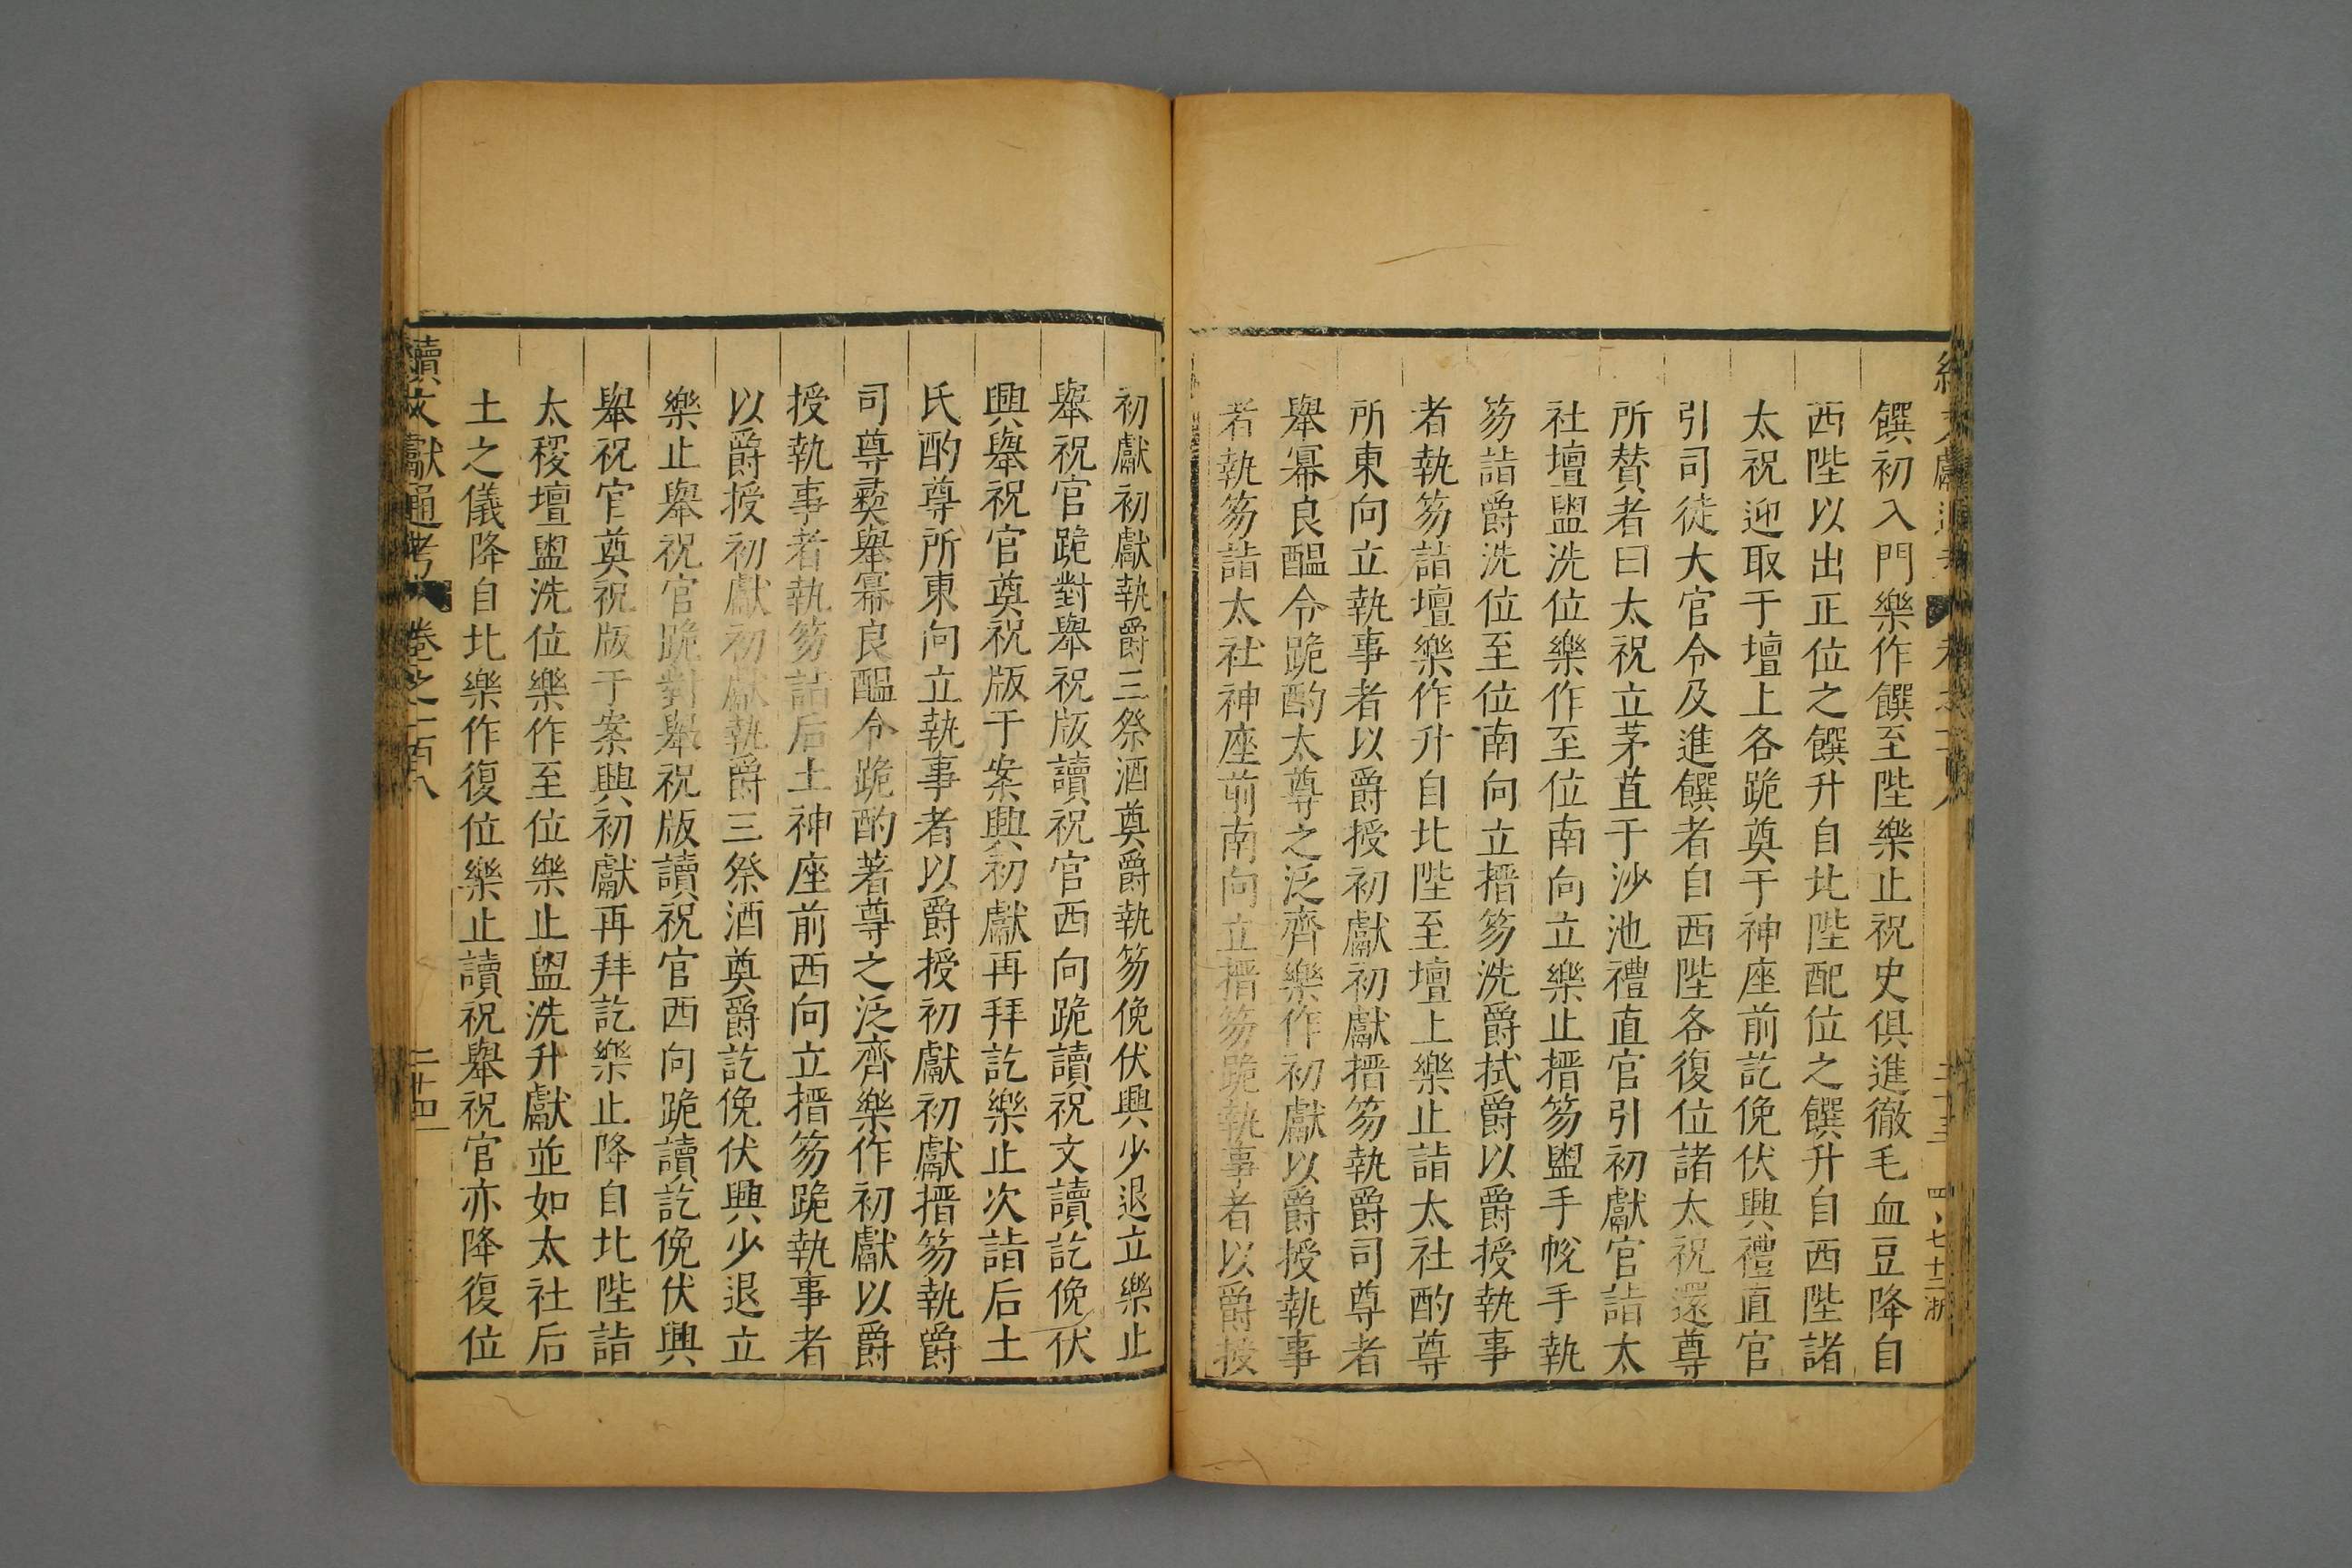 饌初入門樂作饌至陛樂止祝史俱進徹毛血豆降自
西陛以出正位之饌升自北陛配位之饌升自西陛諸
太祝迎取于壇上各跪奠于神座前訖俛伏興禮直官
引司徒大官令及進饌者自西陛各復位諸太祝還尊
所賛者曰太祝立茅苴于沙池禮直官引初獻官詣太
社壇盥洗位樂作至位南向立樂止搢笏盥手帨手執
笏詣爵洗位至位南向立搢笏洗爵拭爵以爵授執事
者執笏詣壇樂作升自北陛至壇上樂止詣太社酌尊
所東向立執事者以爵授初獻初獻搢笏執爵司尊者
舉冪良醞令跪酌太尊之泛齊樂作初獻以爵授執事
者執笏詣太社神座前南向立搢笏跪執事者以爵授
初獻初獻執爵三祭酒奠爵執笏俛伏興少退立樂止
舉祝官跪對舉祝版讀祝官西向跪讀祝文讀訖俛伏
興舉祝官奠祝版于案興初獻再拜訖樂止次詣后土
氏酌尊所東向立執事者以爵授初獻初獻搢笏執爵
司尊彞舉冪良醞令跪酌著尊之泛齊樂作初獻以爵
授執事者執笏詣后土神座前西向立搢笏跪執事者
以爵授初獻初獻執爵三祭酒奠爵訖俛伏興少退立
樂止舉祝官跪對舉祝版讀祝官西向跪讀訖俛伏興
舉祝官奠祝版于案興初獻再拜訖樂止降自北陛詣
太稷壇盥洗位樂作至位樂止盥洗升獻並如太社后
土之儀降自北樂作復位樂止讀祝舉祝官亦降復位
續文獻通考 卷之一百八 二十四